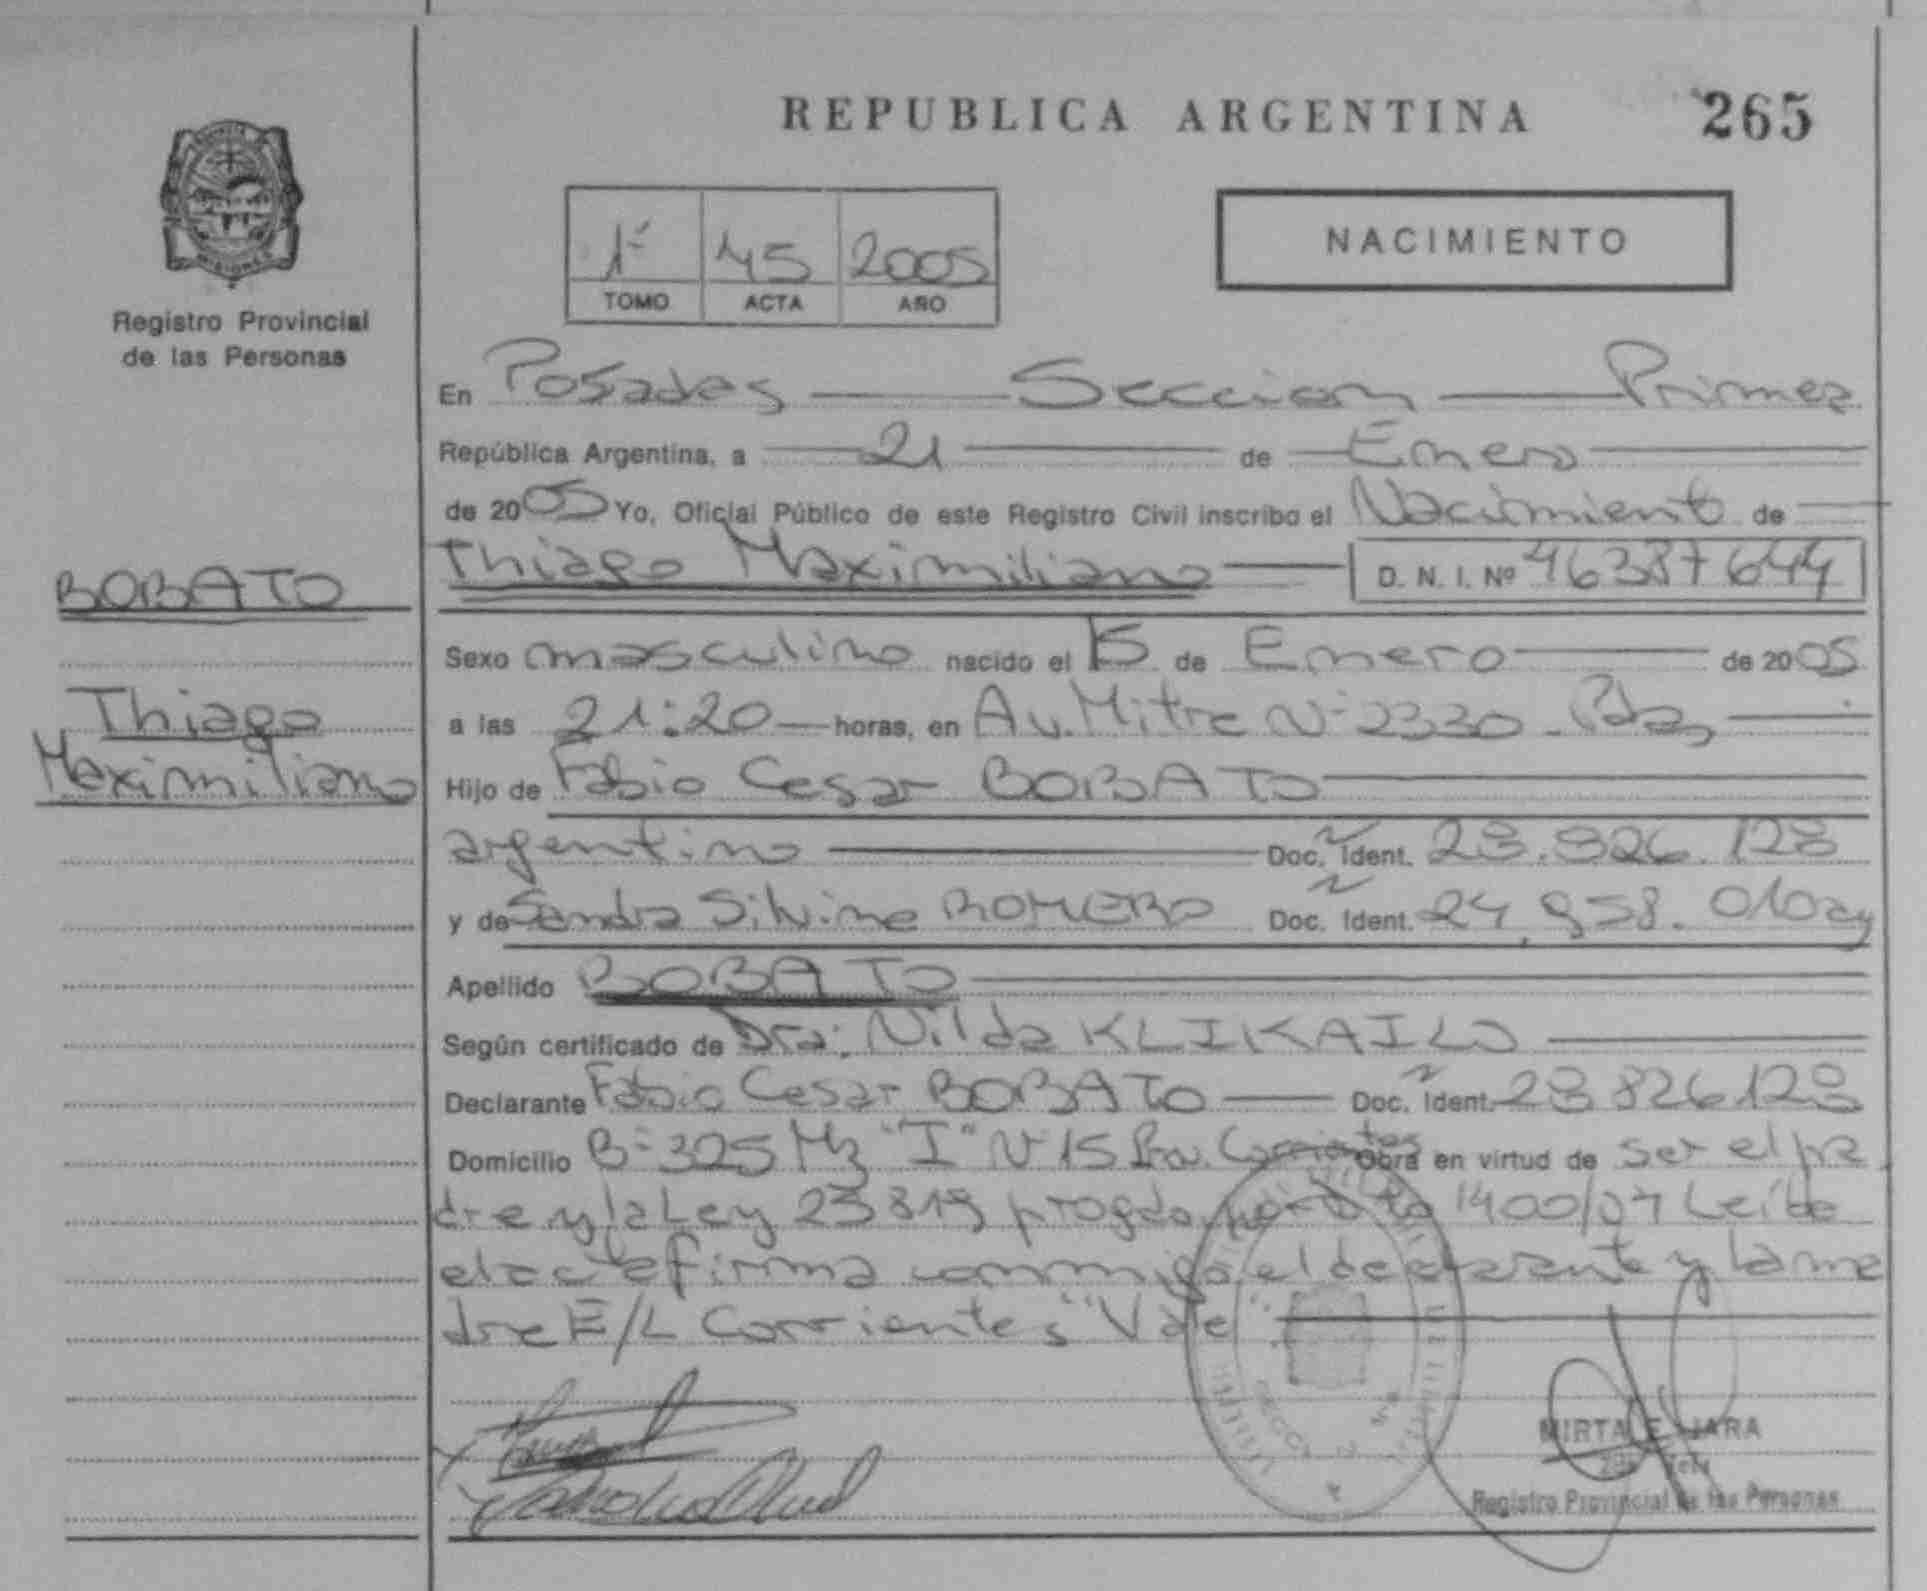 REPUBLICA ARGENTINA 265
MISIONES
Registro Provincial
de las Personas
1º 45 2005
TOMO ACTA AÑO
NACIMIENTO
En Posadas Seccion Primera
República Argentina, a 21 de Enero
de 2005 Yo, Oficial Público de este Registro Civil inscribo el Nacimiento de
Thiago Maximiliano D. N. I. Nº 46387644
BOBATO
Sexo masculino nacido el 15 de Enero de 2005
Thiago
Maximiliano
a las 21:20 horas, en Av. Mitre Nº 2330 - Pdas
Hijo de Fabio Cesar BOBATO
argentino Doc. Ident.
y de Sandra Silvina ROMERO Doc. Ident. 24.958.010
Apellido BOBATO
Según certificado de Dra. Nilda KLIKAILO
Declarante Fabio Cesar BOBATO Doc. Ident.
Domicilio Bº 325 Mz "I" Nº 15 en virtud de ser el pa
dre y la Ley 1400/04 Leída
el acta firma conmigo el declarante y la ma
dre E/L Corrientes "Vale
MIRTA E. JARA
Registro Provincial de las Personas